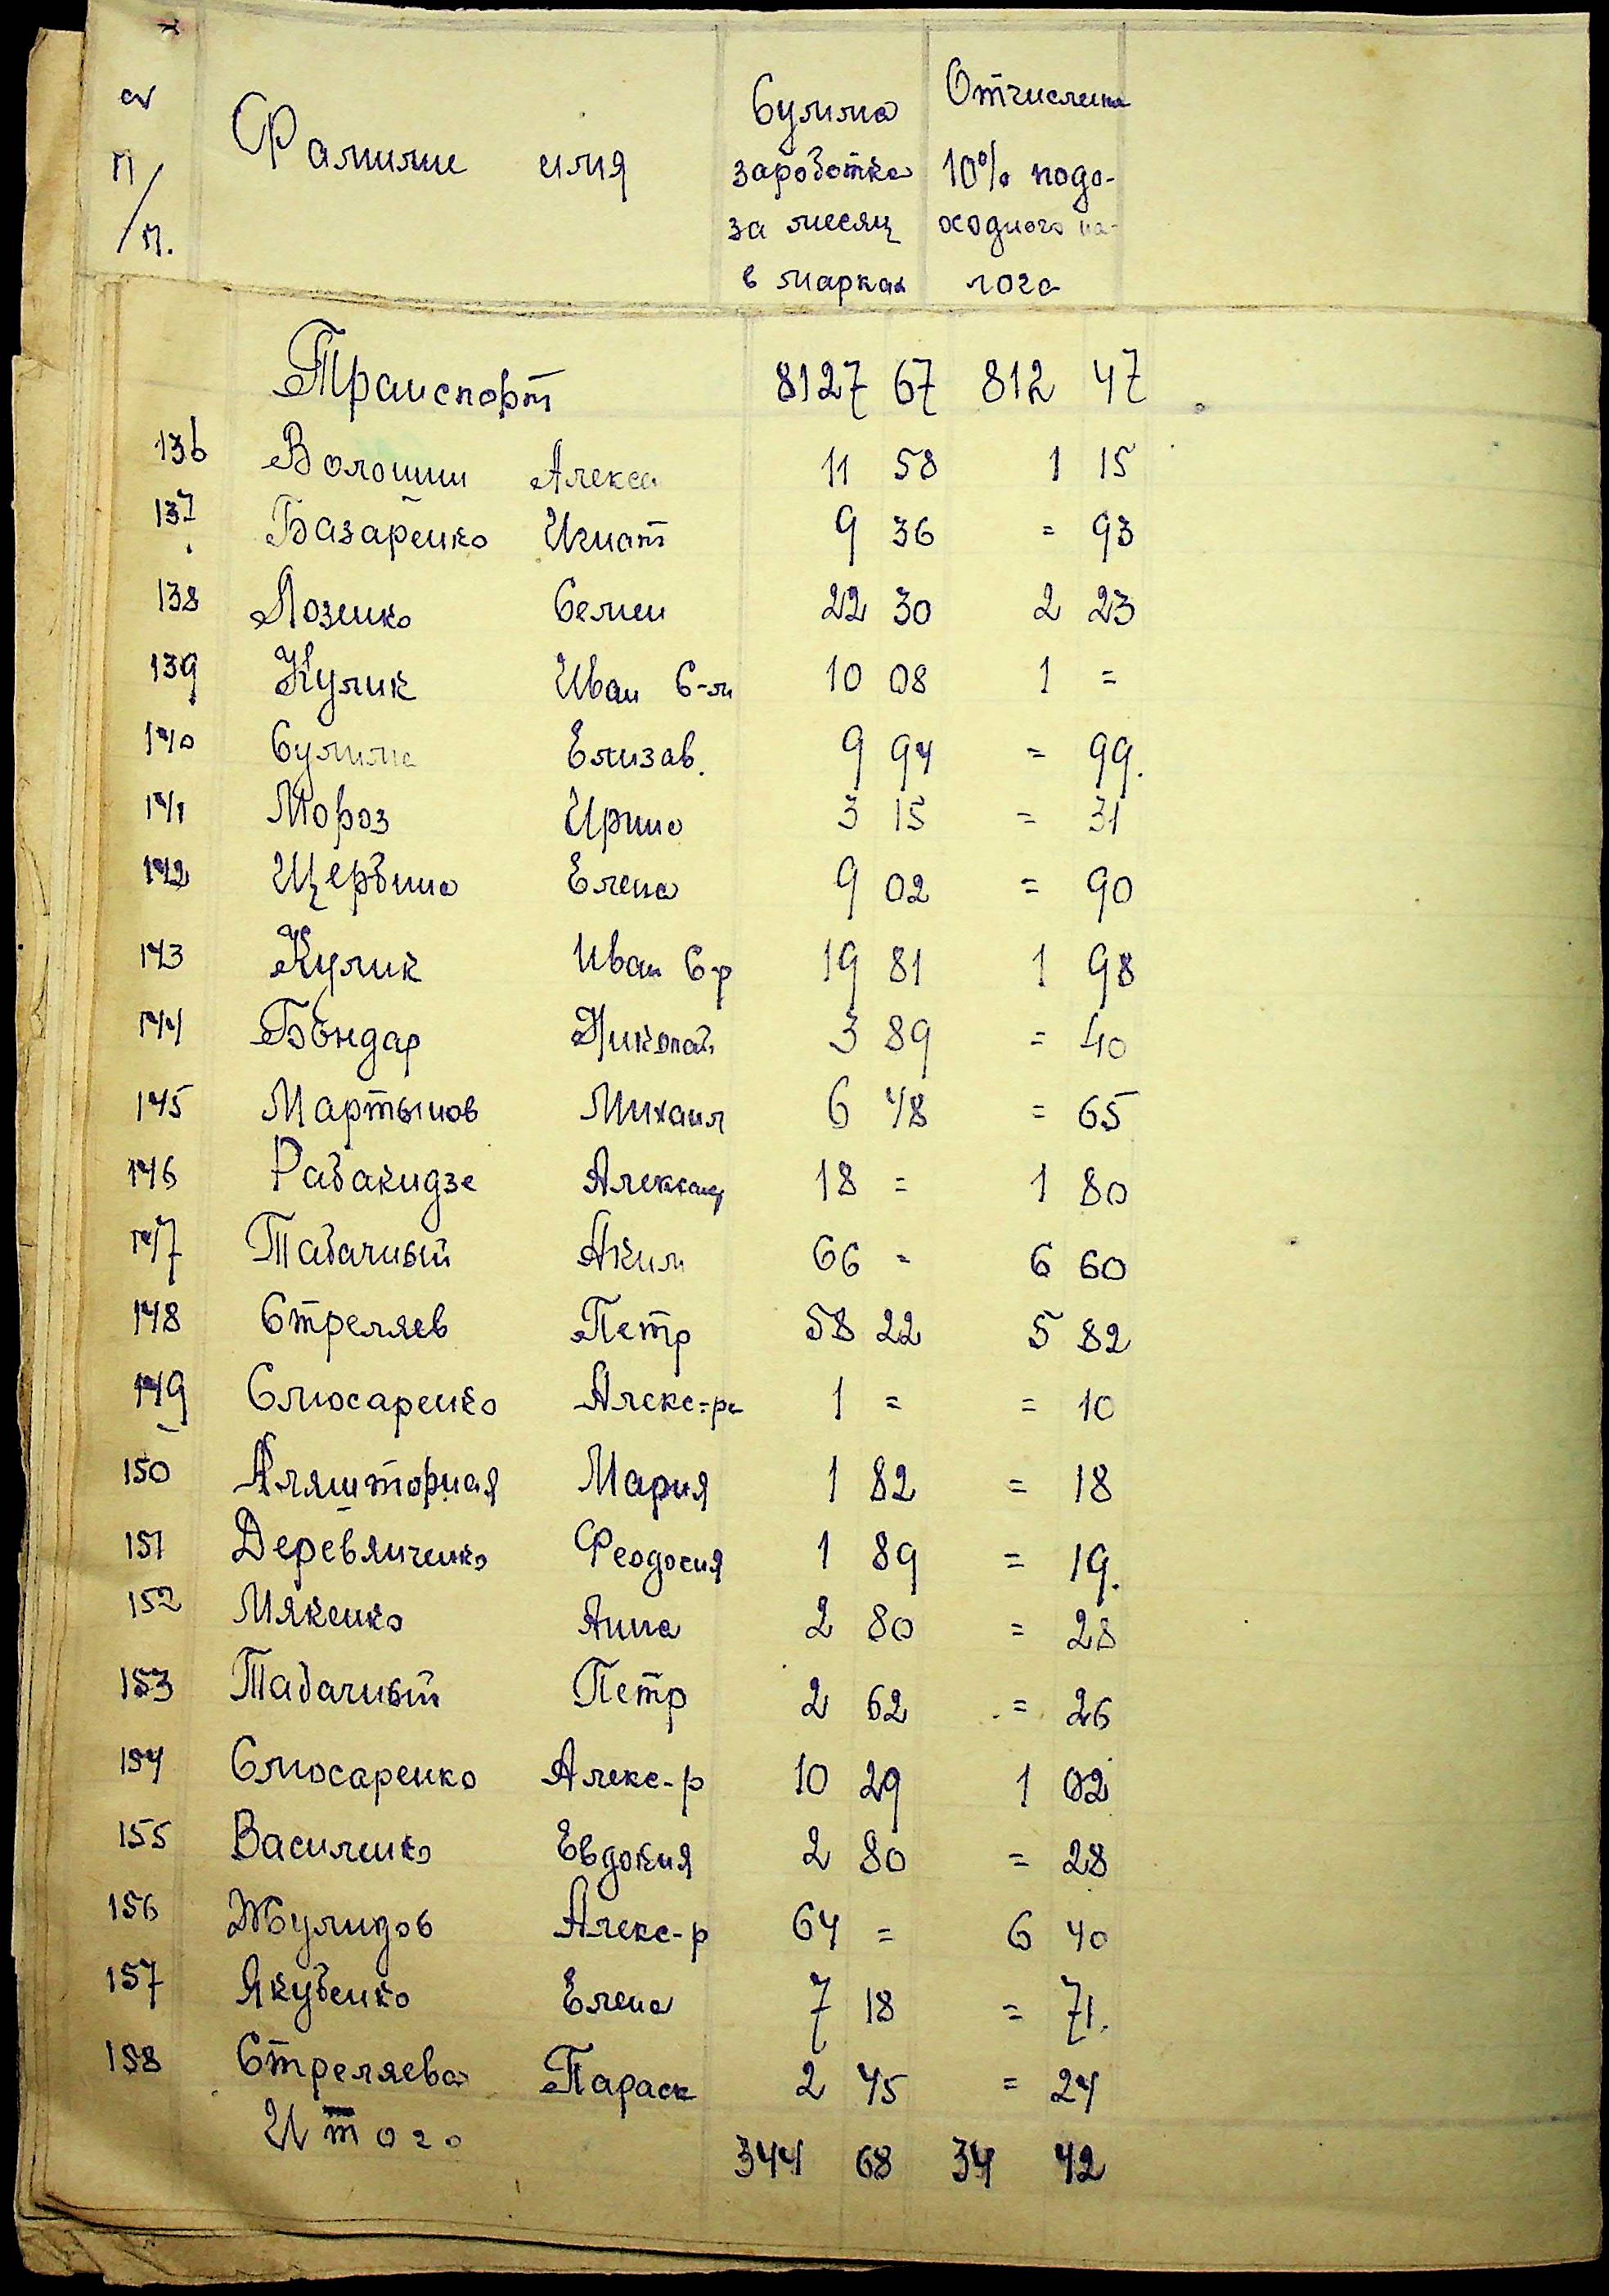 № п/п. Фамилие имя Сумма заработка за месяц в марках Отчислено 10% подоходного налога
Транспорт 8127 67 812 47
136 Волошин Алекса 11 58 1 15
137 Базаренко Игнат 9 36 = 93
138 Лозенко Семен 22 30 2 23
139 Кулик Иван С-м 10 08 1 =
140 Сулима Елизав. 9 94 = 99.
141 Мороз Ирина 3 15 = 31
142 Щербина Елена 9 02 = 90
143 Кулик Иван С-р 19 81 1 98
144 Бондар Николай 3 89 = 40
145 Мартынов Михаил 6 48 = 65
146 Рабакидзе Александ 18 = 1 80
147 Табачный Аким 66 = 6 60
148 Стреляев Петр 58 22 5 82
149 Слюсаренко Алекс-ра 1 = = 10
150 Аляшторная Мария 1 82 = 18
151 Деревянченко Феодосия 1 89 = 19.
152 Мякенко Анна 2 80 = 28
153 Табачный Петр 2 62 = 26
154 Слюсаренко Алекс-р 10 29 1 02
155 Василенко Евдокия 2 80 = 28
156 Жулидов Алекс-р 64 = 6 40
157 Якубенко Елена 7 18 = 71.
158 Стреляева Параск 2 45 = 24
Итого 344 68 34 42